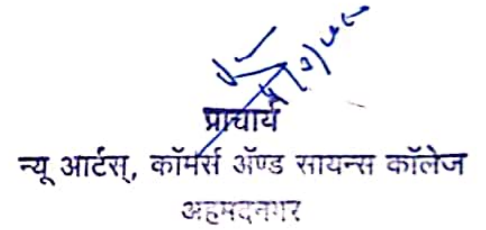 प्राचार्य
न्यू आर्टस्, कॉमर्स ॲण्ड सायन्स कॉलेज
अहमदनगर